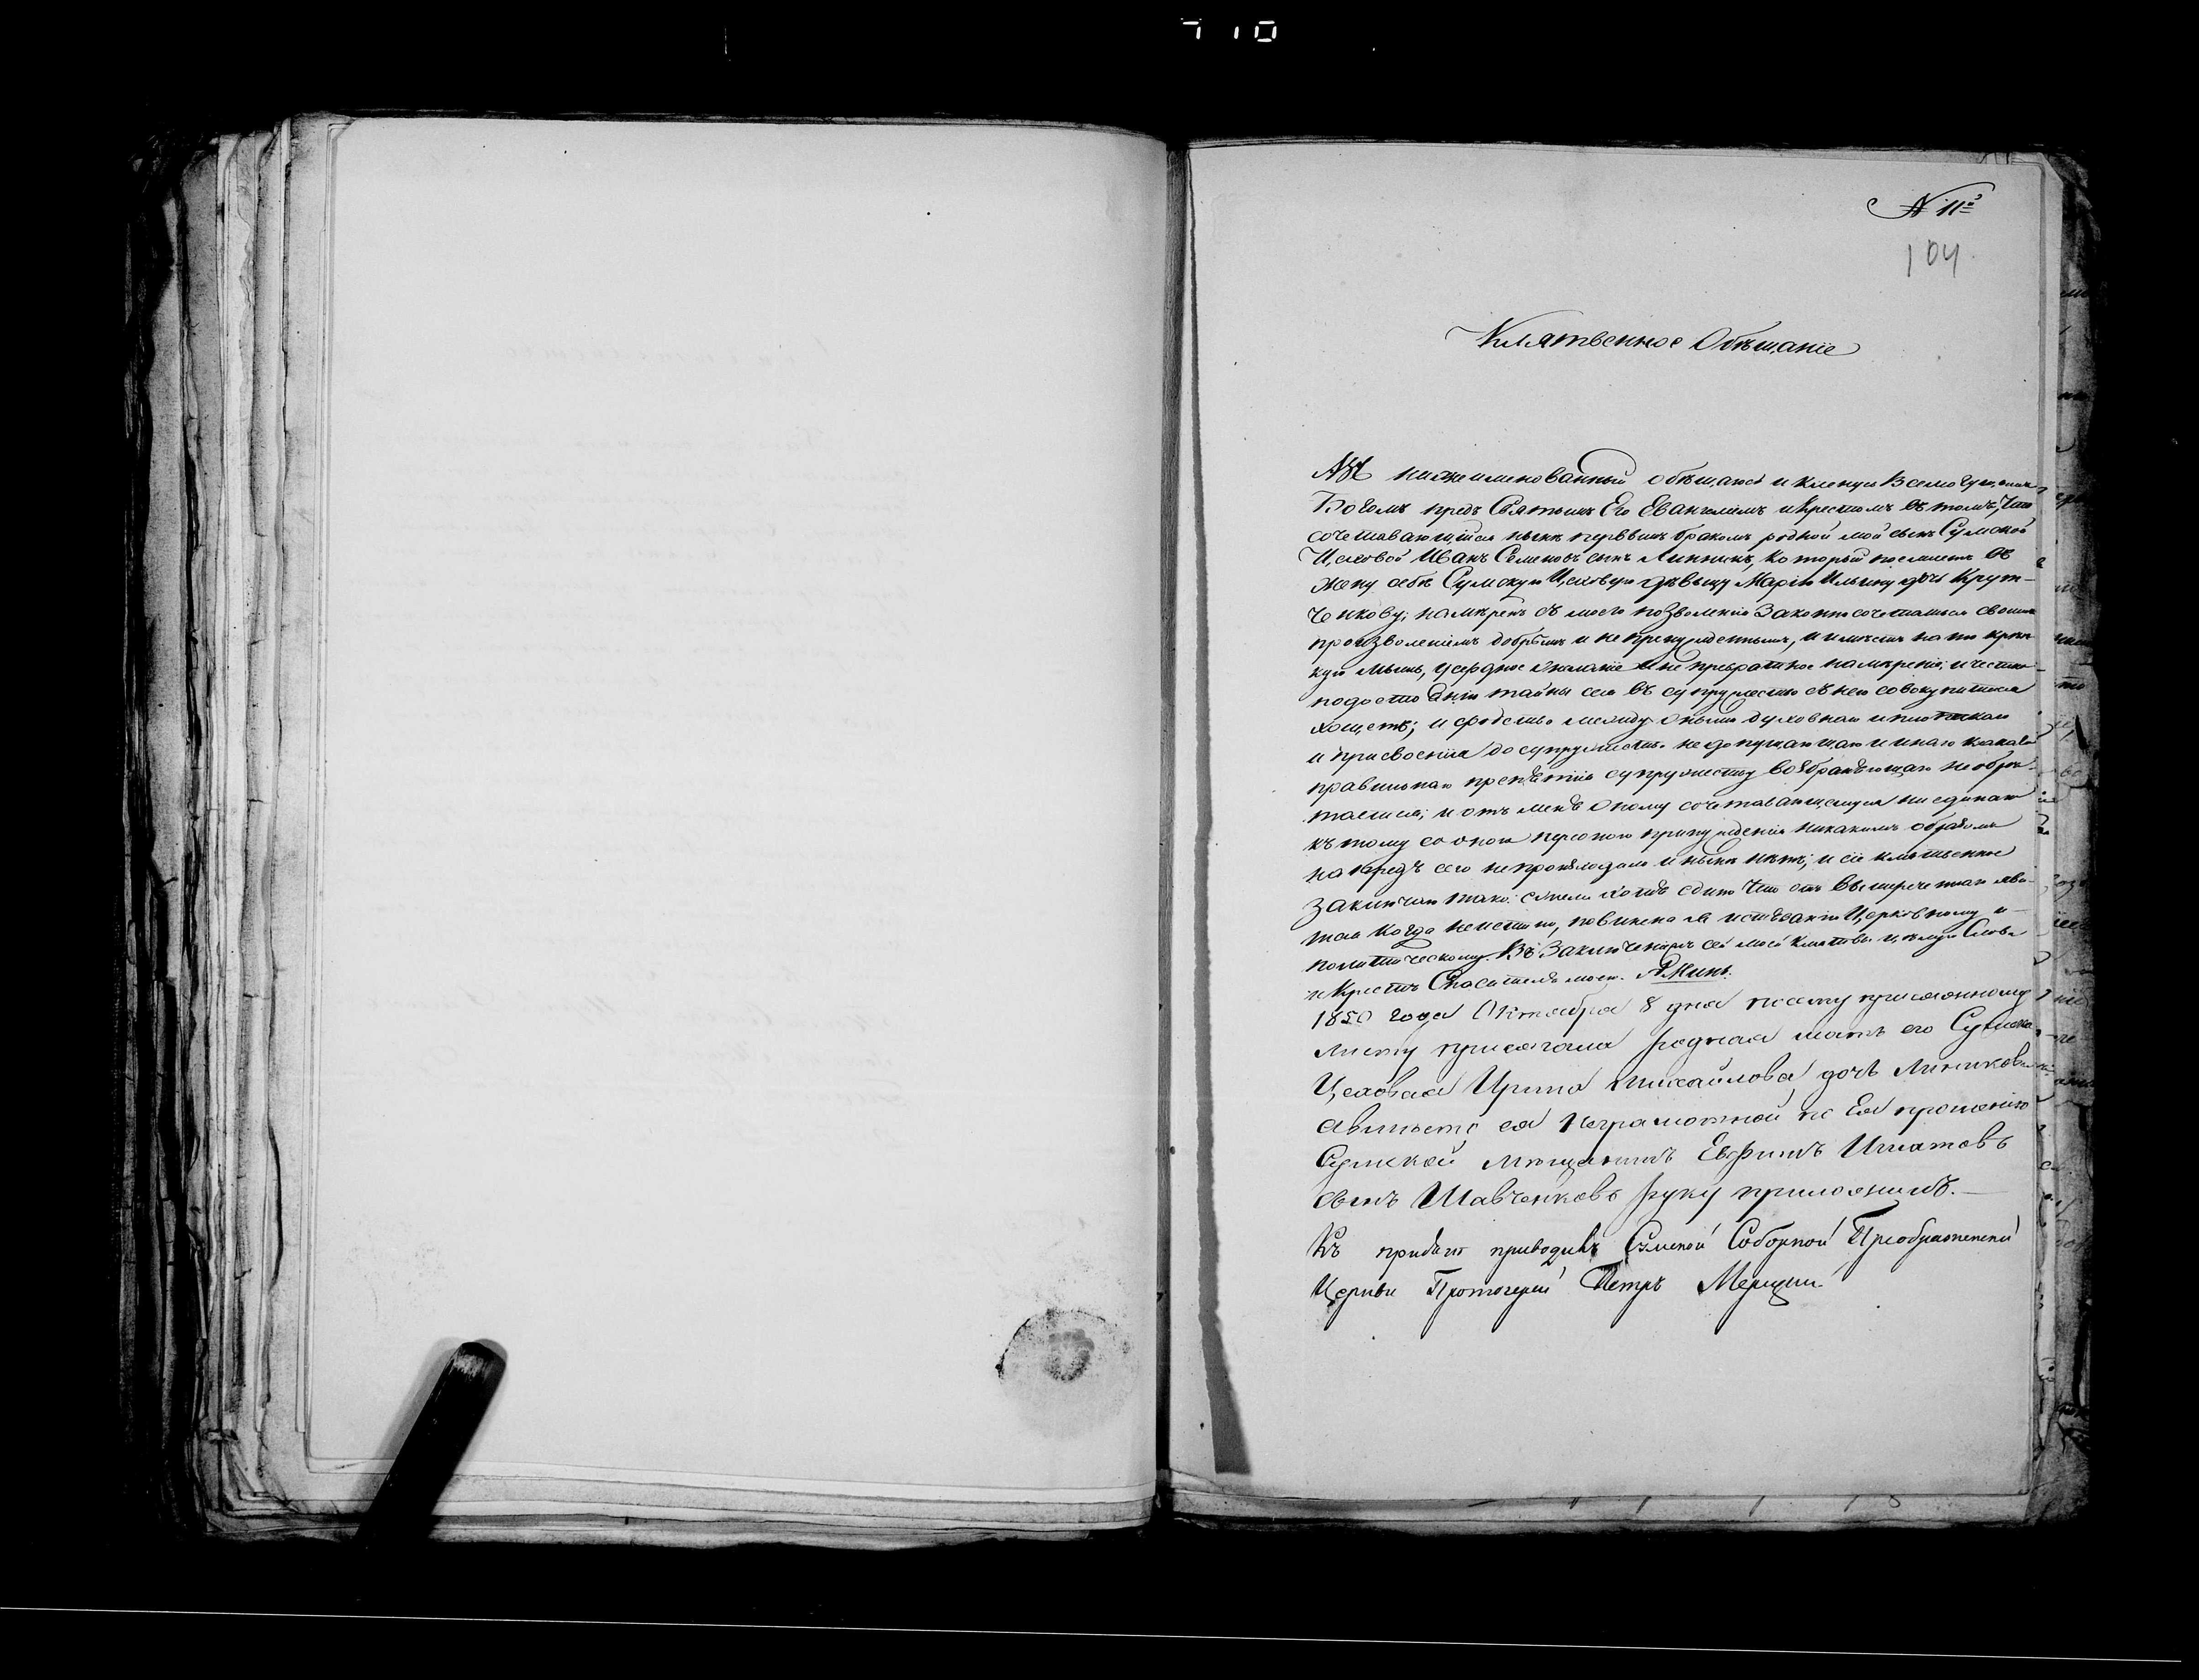 710
N 11й
104
Клятвенное Обѣщаніе
АЗЪ нижеименованный обѣщаюсь и кленуся Всемогущимъ
Богомъ предъ Святымъ Его Евангеліемъ и Крестомъ въ томъ, что
сочетавающійся нынѣ первымъ бракомъ родной мой сынъ Сумской
Цеховой Иванъ Семеновъ сынъ Линникъ, который поемлетъ въ
жену себѣ Сумскую Цеховую дѣвицу Марію Ильину дочь Крут-
ченкову; намѣренъ съ моего позволенія законно сочетаться своимъ
произволеніемъ добрымъ и непринужденнымъ, и имѣетъ на то крѣп-
кую мысль, усердное желаніе и не превратное намѣреніе; и честно
по достоянію тайны сея въ супружество съ нею совокупитися
хощетъ; и сродство между оными духовнаго и плотскаго
и присвоенія до супружества недопущающаго и инаго какаго
правильнаго препятія супружеству возбраняющаго не обрѣ-
таетися; и отъ мене оному сочетавающемуся ни единаго
къ тому со оною персоною принужденія никакимъ образомъ
напредъ сего непроисходило и нынѣ нѣтъ; и сіе клятвенно
заключаю тако: если едино что отъ вышеречетнаго яви-
тся когда неистинно, повиненъ я истязанію Церковному и
политическому. Въ Заключеніи сей моей клятвы цѣлую Слова
и Крестъ Спасителя моего. Аминь.
1850 года Октября 8 дня посему присяжному
листу присягала родная мать его Сумская
Цеховая Ирина Михайлова дочь Линникова
а вмѣсто ея неграмотной по Ея прошенію
Сумской мѣщанинъ Евфимъ Игнатовъ
сынъ Шавченковъ руку приложилъ.
Къ присягѣ приводилъ Сумской Соборной Преображенской
Церкви Протоіерей Петръ